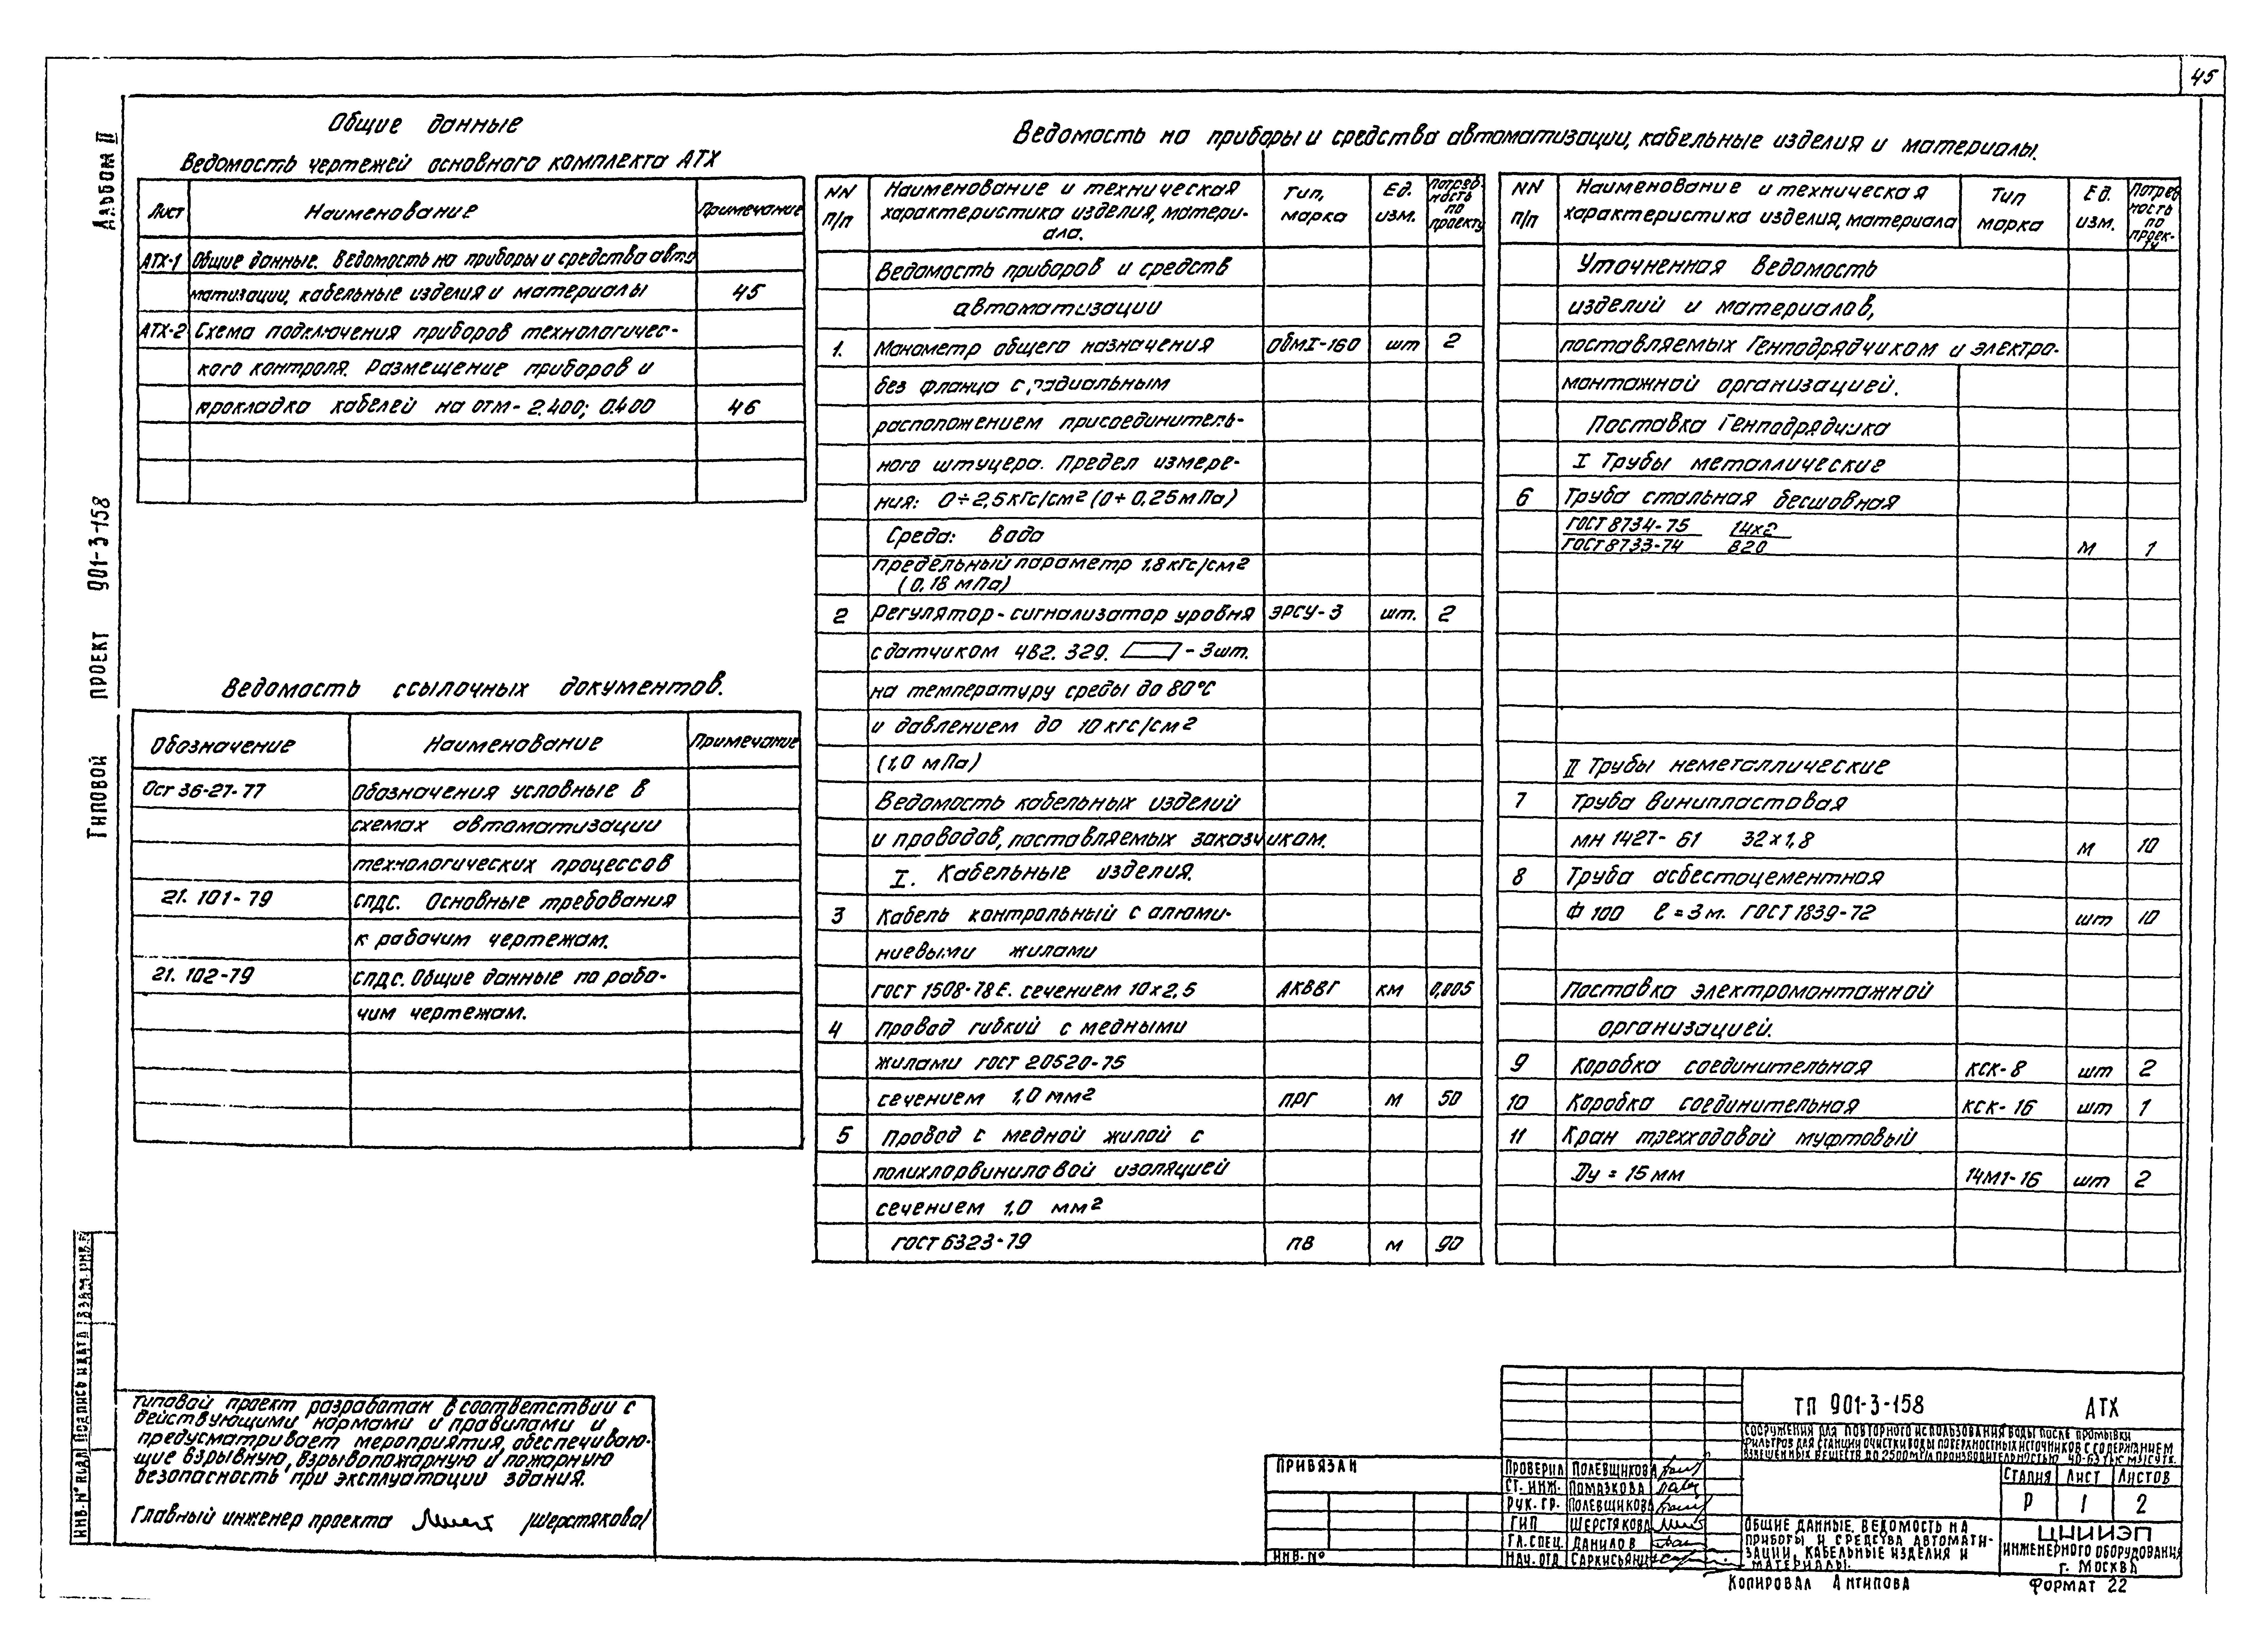 45
Альбом II
Типовой проект 901-3-158
Общие данные
Ведомость чертежей основного комплекта АТХ
Лист Наименование Примечание
АТХ-1 Общие данные. Ведомость на приборы и средства авто
матизации, кабельные изделия и материалы 45
АТХ-2 Схема подключения приборов технологичес-
кого контроля. Размещение приборов и
прокладка кабелей на отм-2.400; 0.400 46
Ведомость ссылочных документов.
Обозначение Наименование Примечание
Ост 36-27-77 Обозначения условные в
схемах автоматизации
технологических процессов
21. 101-79 СПДС. Основные требования
к рабочим чертежам.
21. 102-79 СПДС. Общие данные по рабо-
чим чертежам.
Ведомость на приборы и средства автоматизации, кабельные изделия и материалы.
NN п/п
Наименование и техническая
характеристика изделия, матери-
ала.
Тип, марка
Ед. изм.
Потреб-
ность
по
проекту
Ведомость приборов и средств
автоматизации
1. Манометр общего назначения ОбМI-160 шт 2
без фланца с радиальным
расположением присоединитель-
ного штуцера. Предел измере-
ния: 0÷2,5 кГс/см² (0÷0,25 мПа)
Среда: вода
предельный параметр 1,8 кГс/см²
(0,18 мПа)
2 Регулятор-сигнализатор уровня ЭРСУ-3 шт. 2
с датчиком 4В2. 329. – 3 шт.
на температуру среды до 80°С
и давлением до 10 кгс/см²
(1,0 мПа)
Ведомость кабельных изделий
и проводов, поставляемых заказчиком.
I. Кабельные изделия.
3 Кабель контрольный с алюми-
ниевыми жилами
ГОСТ 1508-78Е. сечением 10х2,5 АКВВГ км 0,005
4 Провод гибкий с медными
жилами ГОСТ 20520-75
сечением 1,0 мм² ПРГ м 50
5 Провод с медной жилой с
полихлорвиниловой изоляцией
сечением 1,0 мм²
ГОСТ 6323-79 ПВ м 90
NN п/п
Наименование и техническая
характеристика изделия, материала
Тип марка
Ед. изм.
Потреб
ность
по
проек-
ту
Уточненная ведомость
изделий и материалов,
поставляемых Генподрядчиком и электро-
монтажной организацией.
Поставка Генподрядчика
I Трубы металлические
6 Труба стальная бесшовная
ГОСТ 8734-75 14х2
ГОСТ 8733-74 В20 м 1
II Трубы неметаллические
7 Труба винипластовая
МН 1427-61 32х1,8 м 10
8 Труба асбестоцементная
Ф 100 ℓ=3м. ГОСТ 1839-72 шт 10
Поставка электромонтажной
организацией.
9 Коробка соединительная КСК-8 шт 2
10 Коробка соединительная КСК-16 шт 1
11 Кран трехходовой муфтовый
Ду = 15 мм 14М1-16 шт 2
Типовой проект разработан в соответствии с
действующими нормами и правилами и
предусматривает мероприятия, обеспечиваю-
щие взрывную, взрывопожарную и пожарную
безопасность при эксплуатации здания.
Главный инженер проекта /Шерстякова/
Инв. № подл Подпись и дата Взам. инв. №
Привязан
Инв. №
Проверил Полевщикова
Ст. инж. Помазкова
Рук. гр. Полевщикова
ГИП Шерстякова
Гл. спец. Данилов
Нач. отд. Саркисьянц
ТП 901-3-158 АТХ
Сооружения для повторного использования воды после промывки
фильтров для станции очистки воды поверхностных источников с содержанием
взвешенных веществ до 2500мг/л производительностью 40-63 тыс м³/сут.
Стадия Лист Листов
Р 1 2
Общие данные. Ведомость на
приборы и средства автомати-
зации, кабельные изделия и
материалы.
ЦНИИЭП
инженерного оборудования
г. Москва
Копировал Антипова
Формат 22